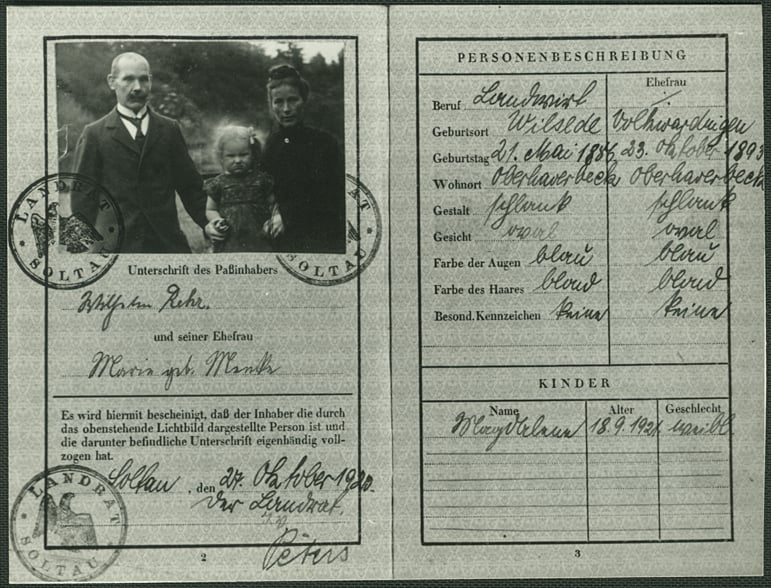 LANDRAT
SOLTAU
LANDRAT
SOLTAU
Unterschrift des Paßinhabers
Wilhelm
und seiner Ehefrau
Marie geb. Menke
Es wird hiermit bescheinigt, daß der Inhaber die durch
das obenstehende Lichtbild dargestellte Person ist und
die darunter befindliche Unterschrift eigenhändig voll-
zogen hat.
Soltau, den 27. Oktober
Der Landrat.
Peters
LANDRAT
SOLTAU
2
PERSONENBESCHREIBUNG
Ehefrau
Beruf Landwirt
Geburtsort Wilsede Volkwardingen
Geburtstag 21. Mai 1886 23. Oktober 1893
Wohnort Oberhaverbeck Oberhaverbeck
Gestalt schlank schlank
Gesicht oval oval
Farbe der Augen blau blau
Farbe des Haares blond blond
Besond. Kennzeichen keine keine
KINDER
Name Alter Geschlecht
Magdalene 18.9. weibl.
3